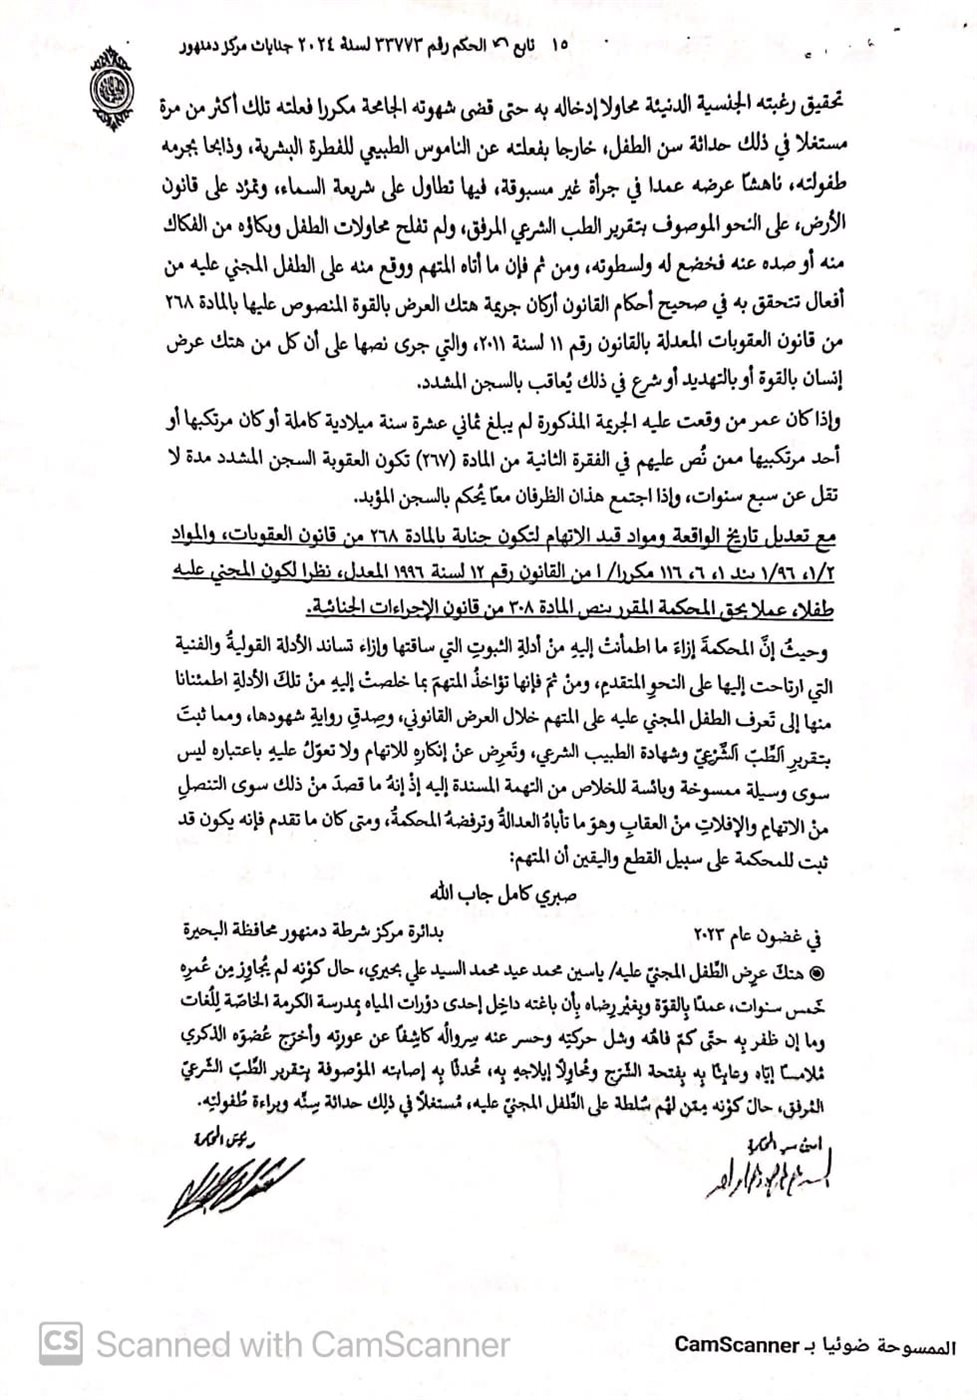 ١٥ تابع الحكم رقم ٣٣٧٧٣ لسنة ٢٠٢٤ جنايات مركز دمنهور
تحقيق رغبته الجنسية الدنيئة محاولا إدخاله به حتى قضى شهوته الجامحة مكررا فعلته تلك أكثر من مرة
مستغلا في ذلك حداثة سن الطفل، خارجا بفعلته عن الناموس الطبيعي للفطرة البشرية، وذابحا بجرمه
طفولته، ناهشًا عرضه عمدا في جرأة غير مسبوقة، فيها تطاول على شريعة السماء، وتمرُد على قانون
الأرض، على النحو الموصوف بتقرير الطب الشرعي المرفق، ولم تفلح محاولات الطفل وبكاؤه من الفكاك
منه أو صده عنه فخضع له ولسطوته، ومن ثم فإن ما أتاه المتهم ووقع منه على الطفل المجني عليه من
أفعال تتحقق به في صحيح أحكام القانون أركان جريمة هتك العرض بالقوة المنصوص عليها بالمادة ٢٦٨
من قانون العقوبات المعدلة بالقانون رقم ١١ لسنة ٢٠١١، والتي جرى نصها على أن كل من هتك عرض
إنسان بالقوة أو بالتهديد أو شرع في ذلك يُعاقب بالسجن المشدد.
وإذا كان عمر من وقعت عليه الجريمة المذكورة لم يبلغ ثماني عشرة سنة ميلادية كاملة أو كان مرتكبها أو
أحد مرتكبيها ممن نُص عليهم في الفقرة الثانية من المادة (٢٦٧) تكون العقوبة السجن المشدد مدة لا
تقل عن سبع سنوات، وإذا اجتمع هذان الظرفان معًا يُحكم بالسجن المؤبد.
مع تعديل تاريخ الواقعة ومواد قيد الاتهام لتكون جناية بالمادة ٢٦٨ من قانون العقوبات، والمواد
١/٢، ١/٩٦ بند ١، ٦، ١١٦ مكررا/ ا من القانون رقم ١٢ لسنة ١٩٩٦ المعدل، نظرا لكون المجني عليه
طفلا، عملا بحق المحكمة المقرر بنص المادة ٣٠٨ من قانون الإجراءات الجنائية.
وحيثُ إنَّ المحكمةَ إزاءَ ما اطمأنتْ إليهِ منْ أدلةِ الثبوتِ التي ساقتها وإزاء تساند الأدلة القوليةُ والفنية
التي ارتاحت إليها على النحوِ المتقدمِ، ومنْ ثمَ فإنها تؤاخذُ المتهمَ بما خلصتْ إليهِ منْ تلكَ الأدلةِ اطمئنانا
منها إلى تَعرف الطفل المجني عليه على المتهم خلال العرض القانوني، وصِدقِ روايةِ شهودها، ومما ثبتَ
بتقريرِ اَلطِّبِّ اَلشَّرْعِيِّ وشهادة الطبيب الشرعي، وتَعرِض عنْ إنكارهِ للاتهام ولا تعوّلُ عليهِ باعتباره ليس
سوى وسيلة ممسوخة وبائسة للخلاص من التهمة المسندة إليه إذْ إنهُ ما قصدَ منْ ذلك سوى التنصلِ
منْ الاتهامِ والإفلاتِ منْ العقابِ وهوَ ما تأباهُ العدالةُ وترفضهُ المحكمةُ، ومتى كان ما تقدم فإنه يكون قد
ثبت للمحكمة على سبيل القطع واليقين أن المتهم:
صبري كامل جاب الله
في غضون عام ٢٠٢٣ بدائرة مركز شرطة دمنهور محافظة البحيرة
هتكَ عرِض الطِّفل المجنيّ عليه/ ياسين محمد عيد محمد السيد علي بحيري، حال كوْنِه لم يُجاوِز مِن عُمرِه
خَمس سنوات، عمدًا بِالقوّة وبِغيْر رِضاه بِأن باغته داخِل إحدى دوْرات المياه بِمدرسة الكرمة الخاصّة لِلُّغات
وما إن ظفر بِه حتّى كمّ فاهُه وشل حركتِه وحسر عنه سِروالُه كاشِفًا عن عورتِه وأخرَج عُضوَه الذكري
مُلامسًا إيّاه وعابِثًا بِه بِفتحة الشَّرج ومُحاوِلًا إيلاجهِ بِه، مُحدثًا بِه إصابته المؤصوفة بِتقرير الطّبّ الشّرعيّ
المُرفق، حال كوْنِه مِمّن لهُم سُلطة على الطِّفل المجنيّ عليه، مُستغلًا في ذلِك حداثة سِنّه وبراءة طُفولتِه.
أمين سر المحكمة رئيس المحكمة
CS Scanned with CamScanner
الممسوحة ضوئيا بـ CamScanner